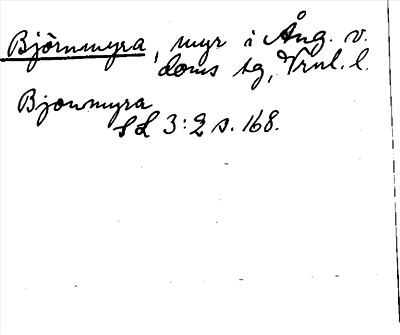 Björnmyra, myr i Ång. v.
doms sg, Vrnl. l.
Bjonmyra
SL 3:2 s. 168.